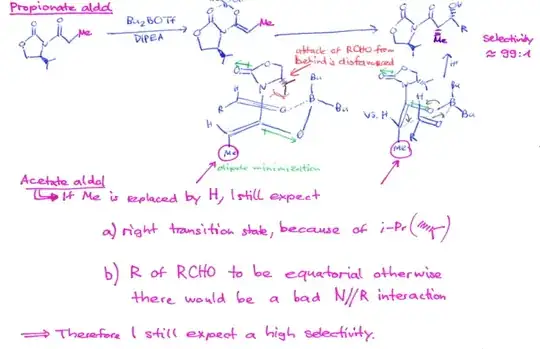 Propionate aldol
Bu₂BOTf
DIPEA
Me
Me
Me
R
selectivity
≈ 99:1
attack of RCHO from
behind is disfavoured
Bu
Bu
R
H
H
N
O
B
Me
vs.
H
H
R
N
O
B
Bu
Bu
Me
dipole minimization
Acetate aldol
If Me is replaced by H, I still expect
a) right transition state, because of i-Pr
b) R of RCHO to be equatorial otherwise
there would be a bad N//R interaction
⟹ Therefore I still expect a high selectivity.